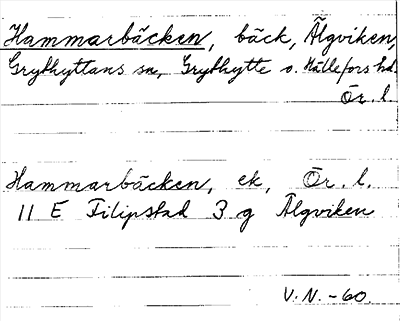 Hammarbäcken, bäck, Älgviken,
Grythyttans sn, Grythytte o. Hällefors hd.
Ör. l.
Hammarbäcken, ek, Ör. l.
11 E Filipstad 3 g Älgviken
V.N. -60.